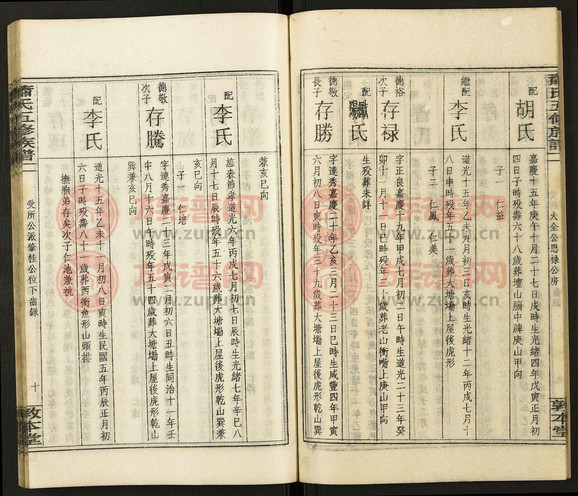 大全公思祿公房
配
胡氏
嘉慶十五年庚午十月二十七日戌時生光緒四年戊寅正月初
四日子時歿壽六十八歲葬壇山廟中牌庚山甲向
子一 仁益
繼配
李氏
道光十五年乙未九月初三日亥時生光緒十二年七月十
八日申時歿年五十一歲葬大塘塲上屋後虎形
子二 仁鳳 仁美
德裕次子
存祿
字正良嘉慶十九年甲戌七月初一日午時生道光二十三年癸
卯十一月十日巳時歿年三歲葬老山衝嘴上庚山甲向
配
氏
生歿葬未詳
德敬長子
存勝
字連秀嘉慶二十年乙亥三月二十三日巳時生咸豐四年甲寅
六月初八日寅時歿年三十九歲葬大塘塲上屋後虎形乾山巽
兼亥巳向
配
李氏
旌表節孝道光六年丙戌七月初三日辰時生光緒七年辛巳八
月十七日辰時歿年五十六歲葬大塘塲上屋後虎形乾山巽兼
亥巳向
子一 仁培
德敬次子
存騰
字達秀嘉慶二十三年戊寅二月初六日丑時生同治十一年壬
申八月十六日時歿年五十四歲葬大塘塲上屋後虎形乾山
巽兼亥巳向
配
李氏
道光十五年乙未十一月初八日寅時生民國五年丙辰正月初
六日子時歿壽八十一歲葬西衝魚形山頭排
撫胞弟存矣次子仁池兼祧
受所公派攀桂公位下齒錄
蕭氏五修族譜
十
敦本堂
蕭氏五修族譜
敦本堂
www.zupu.cn
www.zupu.cn